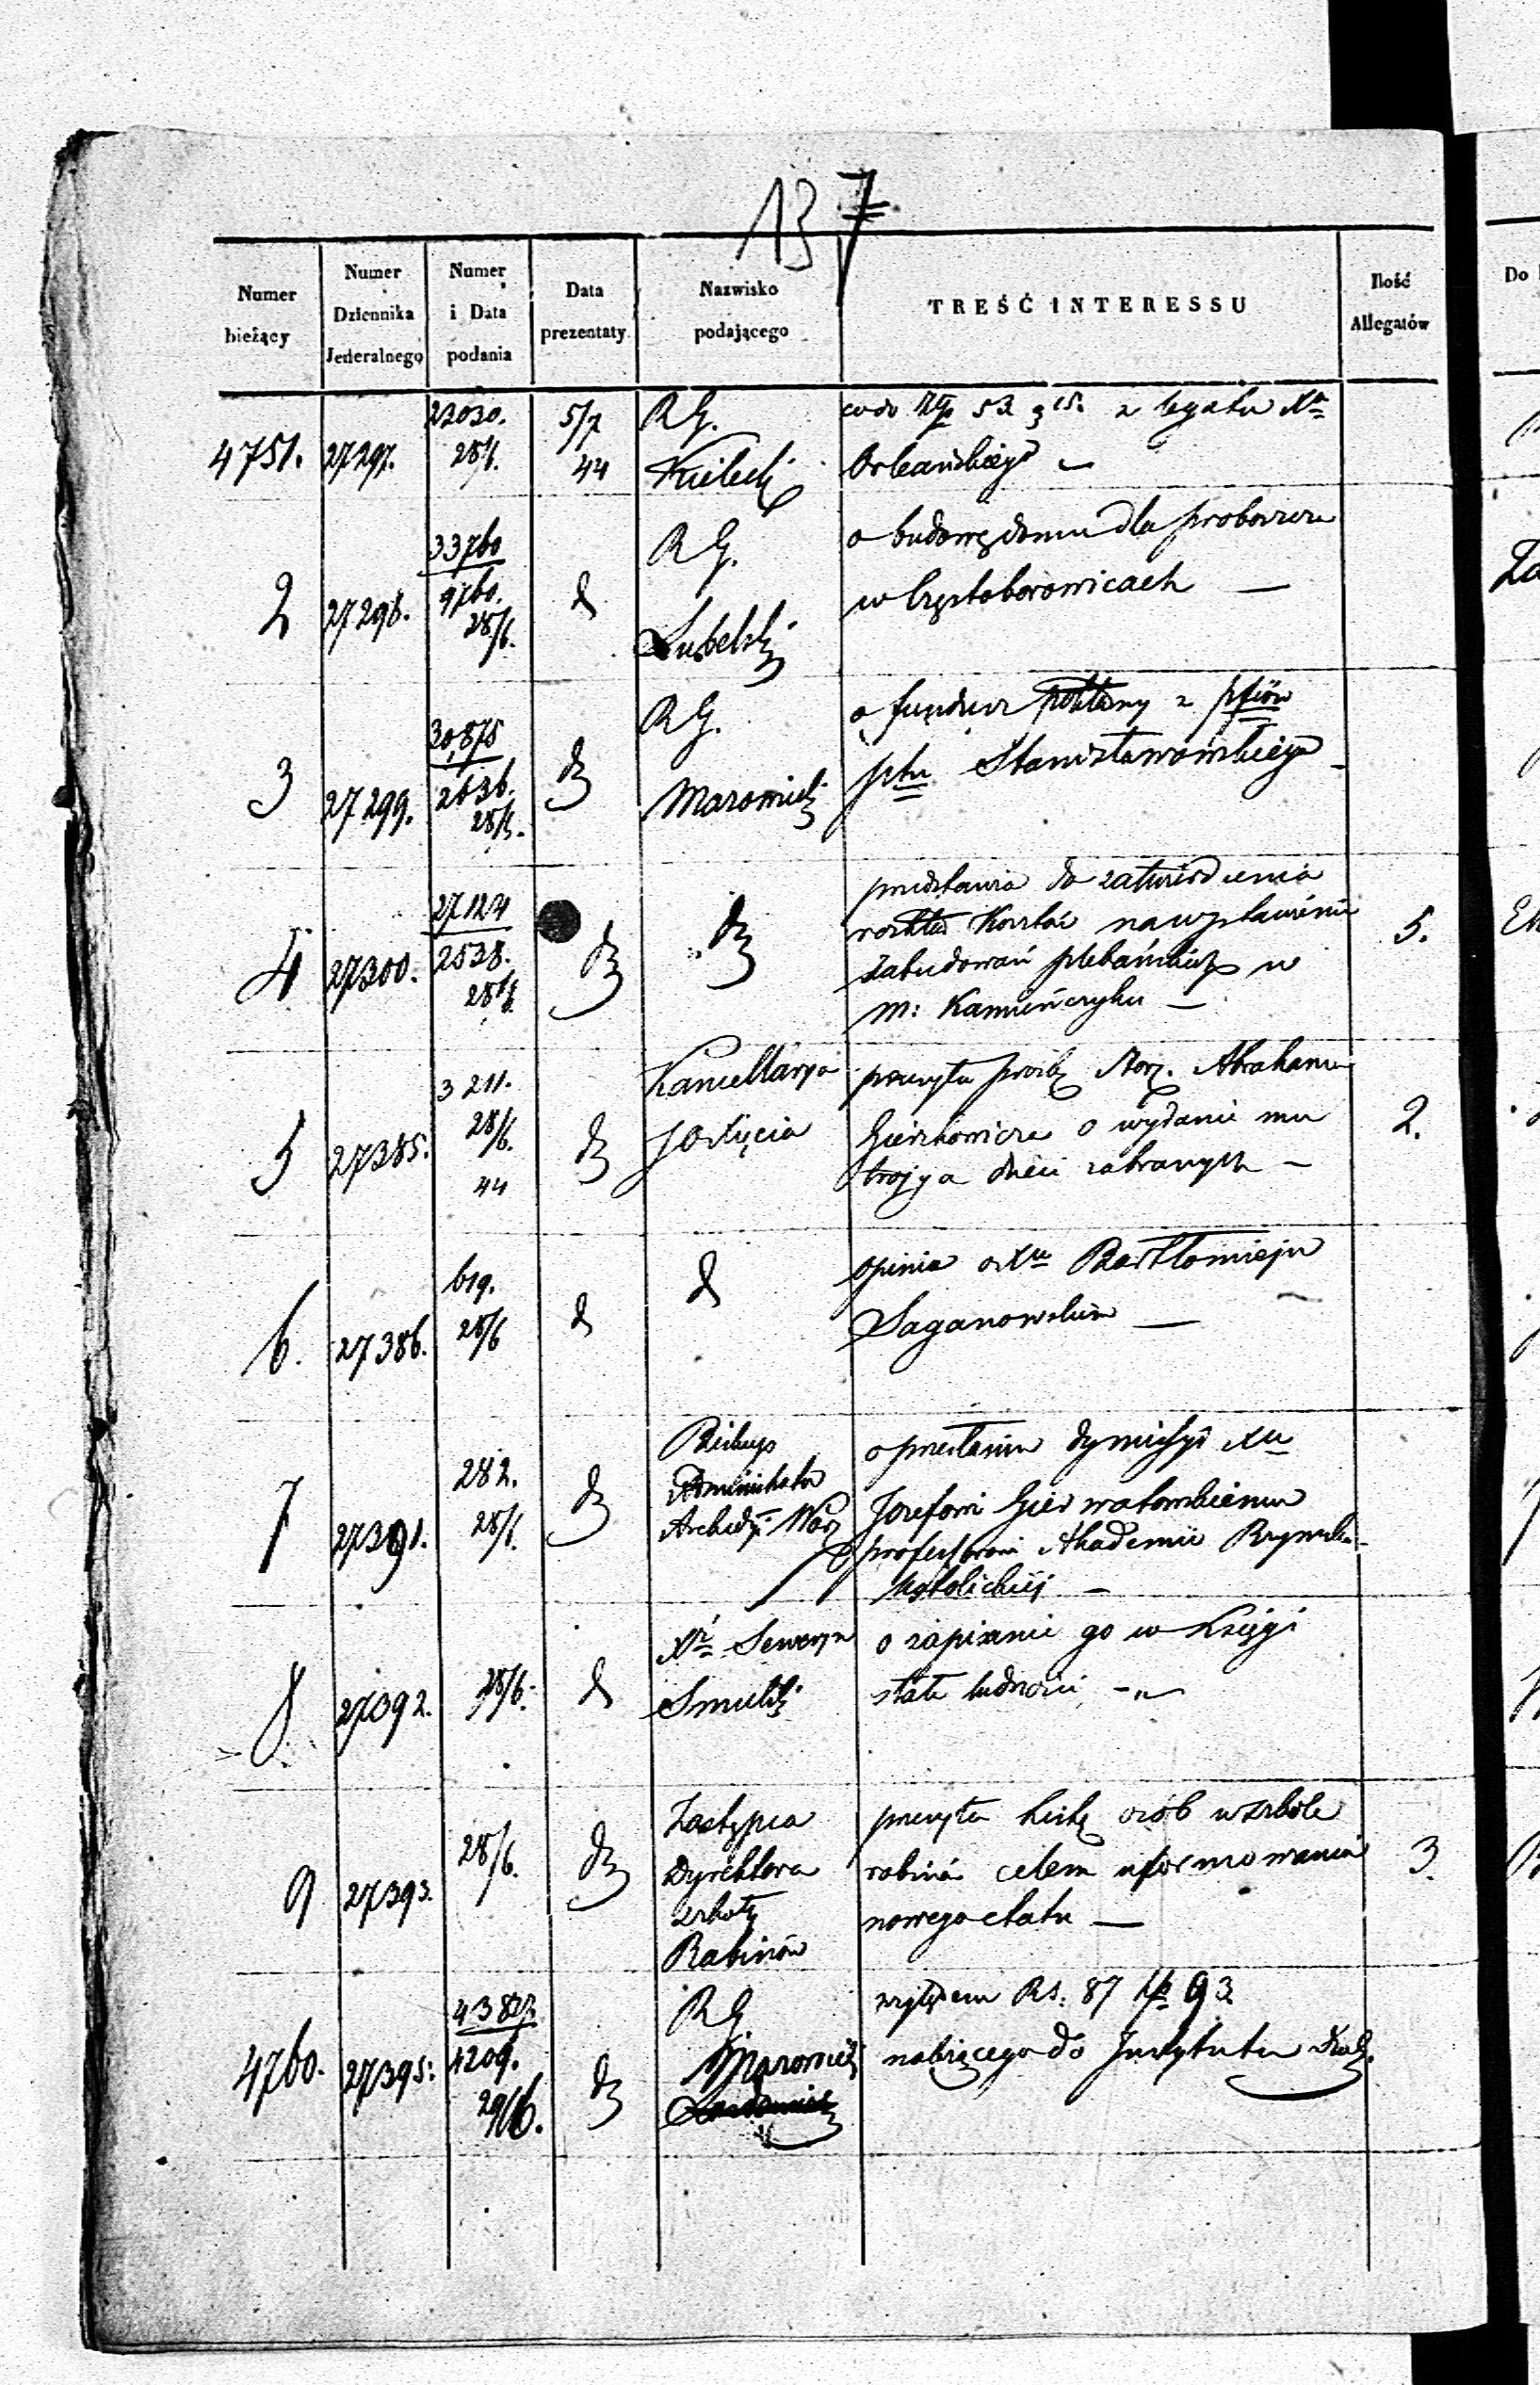 137
Numer bieżący
Numer Dziennika Jeneralnego
Numer i Data podania
Data prezentaty
Nazwisko podającego
TREŚĆ INTERESSU
Ilość Allegatów
Do
4751. 27297. 23030. 28/6. 5/7 44 R G. Kielecki
co do 53 gr 15. z legatu Xa
Orleańskiego —
2 27298. 33760 9760. 28/6. d R G. Lubelski
o budowę domu dla proboszcza
w Częstoborowicach —
3 27299. 30875 2636. 28/6. dz R G. Mazowiecki
o fundusz z
ptu Stanisławowskiego
4 27300. 27124 2538. 28/6. dz dz
przedstawia do zatwierdzenia
rozkład kosztów na wystawienie
zabudowań plebańskich w
m: Kamieńczyku —
5.
5 27385. 3211. 28/6. 44 dz Kancellarya JO Xięcia
przesyła prośbę Abrahama
o wydanie mu
trojga dzieci zabranych —
2.
6. 27386. 619. 28/6 d d
opinia o Xu Bartłomieju
Saganowskim —
7 27391. 282. 28/6. dz Biskup Administrator Archidyi Warsz
o przesłaniu dymissyi Xu
Jozefowi
professorowi Akademii Rzymsko
Katolickiej —
8 27392. 28/6. d Xdz Seweryn
o zapisanie go w Księgi
stałe ludności —
9 27393. 28/6. dz Zastępca Dyrektora szkoły Rabinów
przesyła listę osób w szkole
rabinów celem uformowania
nowego etatu —
3.
4760. 27395. 4209. 29/6. dz R G Mazowiecki
względem Rs: 87 kp 93
należącego do Instytutu